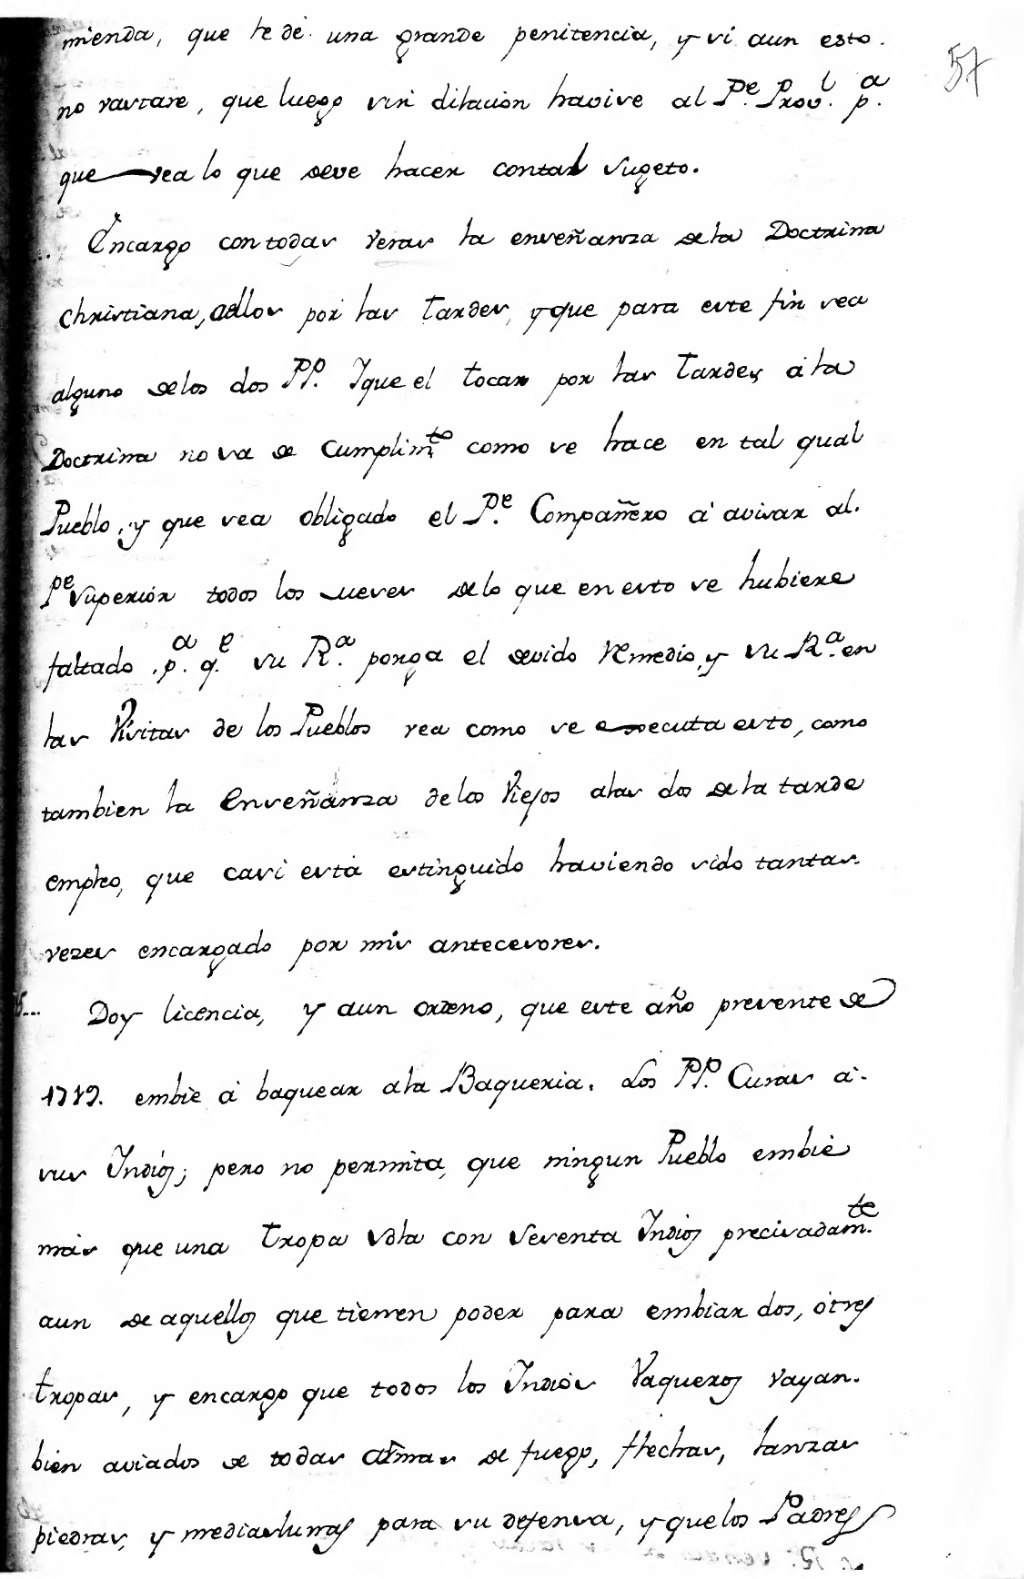 mienda, que le dè una grande penitencia, y si aun esto
57
no vastare, que luego sin dilacion havise al Pe. Provl. pa.
que vea lo que deve hacer con tal sugeto.
Encargo con todas veras la enseñanza de la Doctrina
Christiana, a ellos por las tardes, y que para este fin vea
alguno de los dos PP. Y que el tocar por las tardes á la
Doctrina no sea de cumplimto. como se hace en tal qual
Pueblo, y que sea obligado el Pe. Compañero à avisar al
Pe. Superior todos los jueves de lo que en esto se hubiere
faltado pa. qe. su Ra. ponga el devido remedio, y su Ra. en
las Visitas de los Pueblos vea como se executa esto, como
tambien la Enseñanza de los Viejos a las dos de la tarde
empleo, que casi està extinguido haviendo sido tantas
vezes encargado por mis antecesores.
Doy licencia, y aun ordeno, que este año presente de
1719. embie à baquear a la Baqueria. Los PP. Curas à
sus Indios; pero no permita, que ningun Pueblo embiè
más que una tropa sola con sesenta Indios precisadamte.
aun de aquellos que tienen poder para embiar dos, ò tres
tropas, y encargo que todos los Indios Vaqueros vayan
bien aviados de todas armas de fuego, flechas, lanzas
piedras, y medias lunas para su defensa, y que los Padres